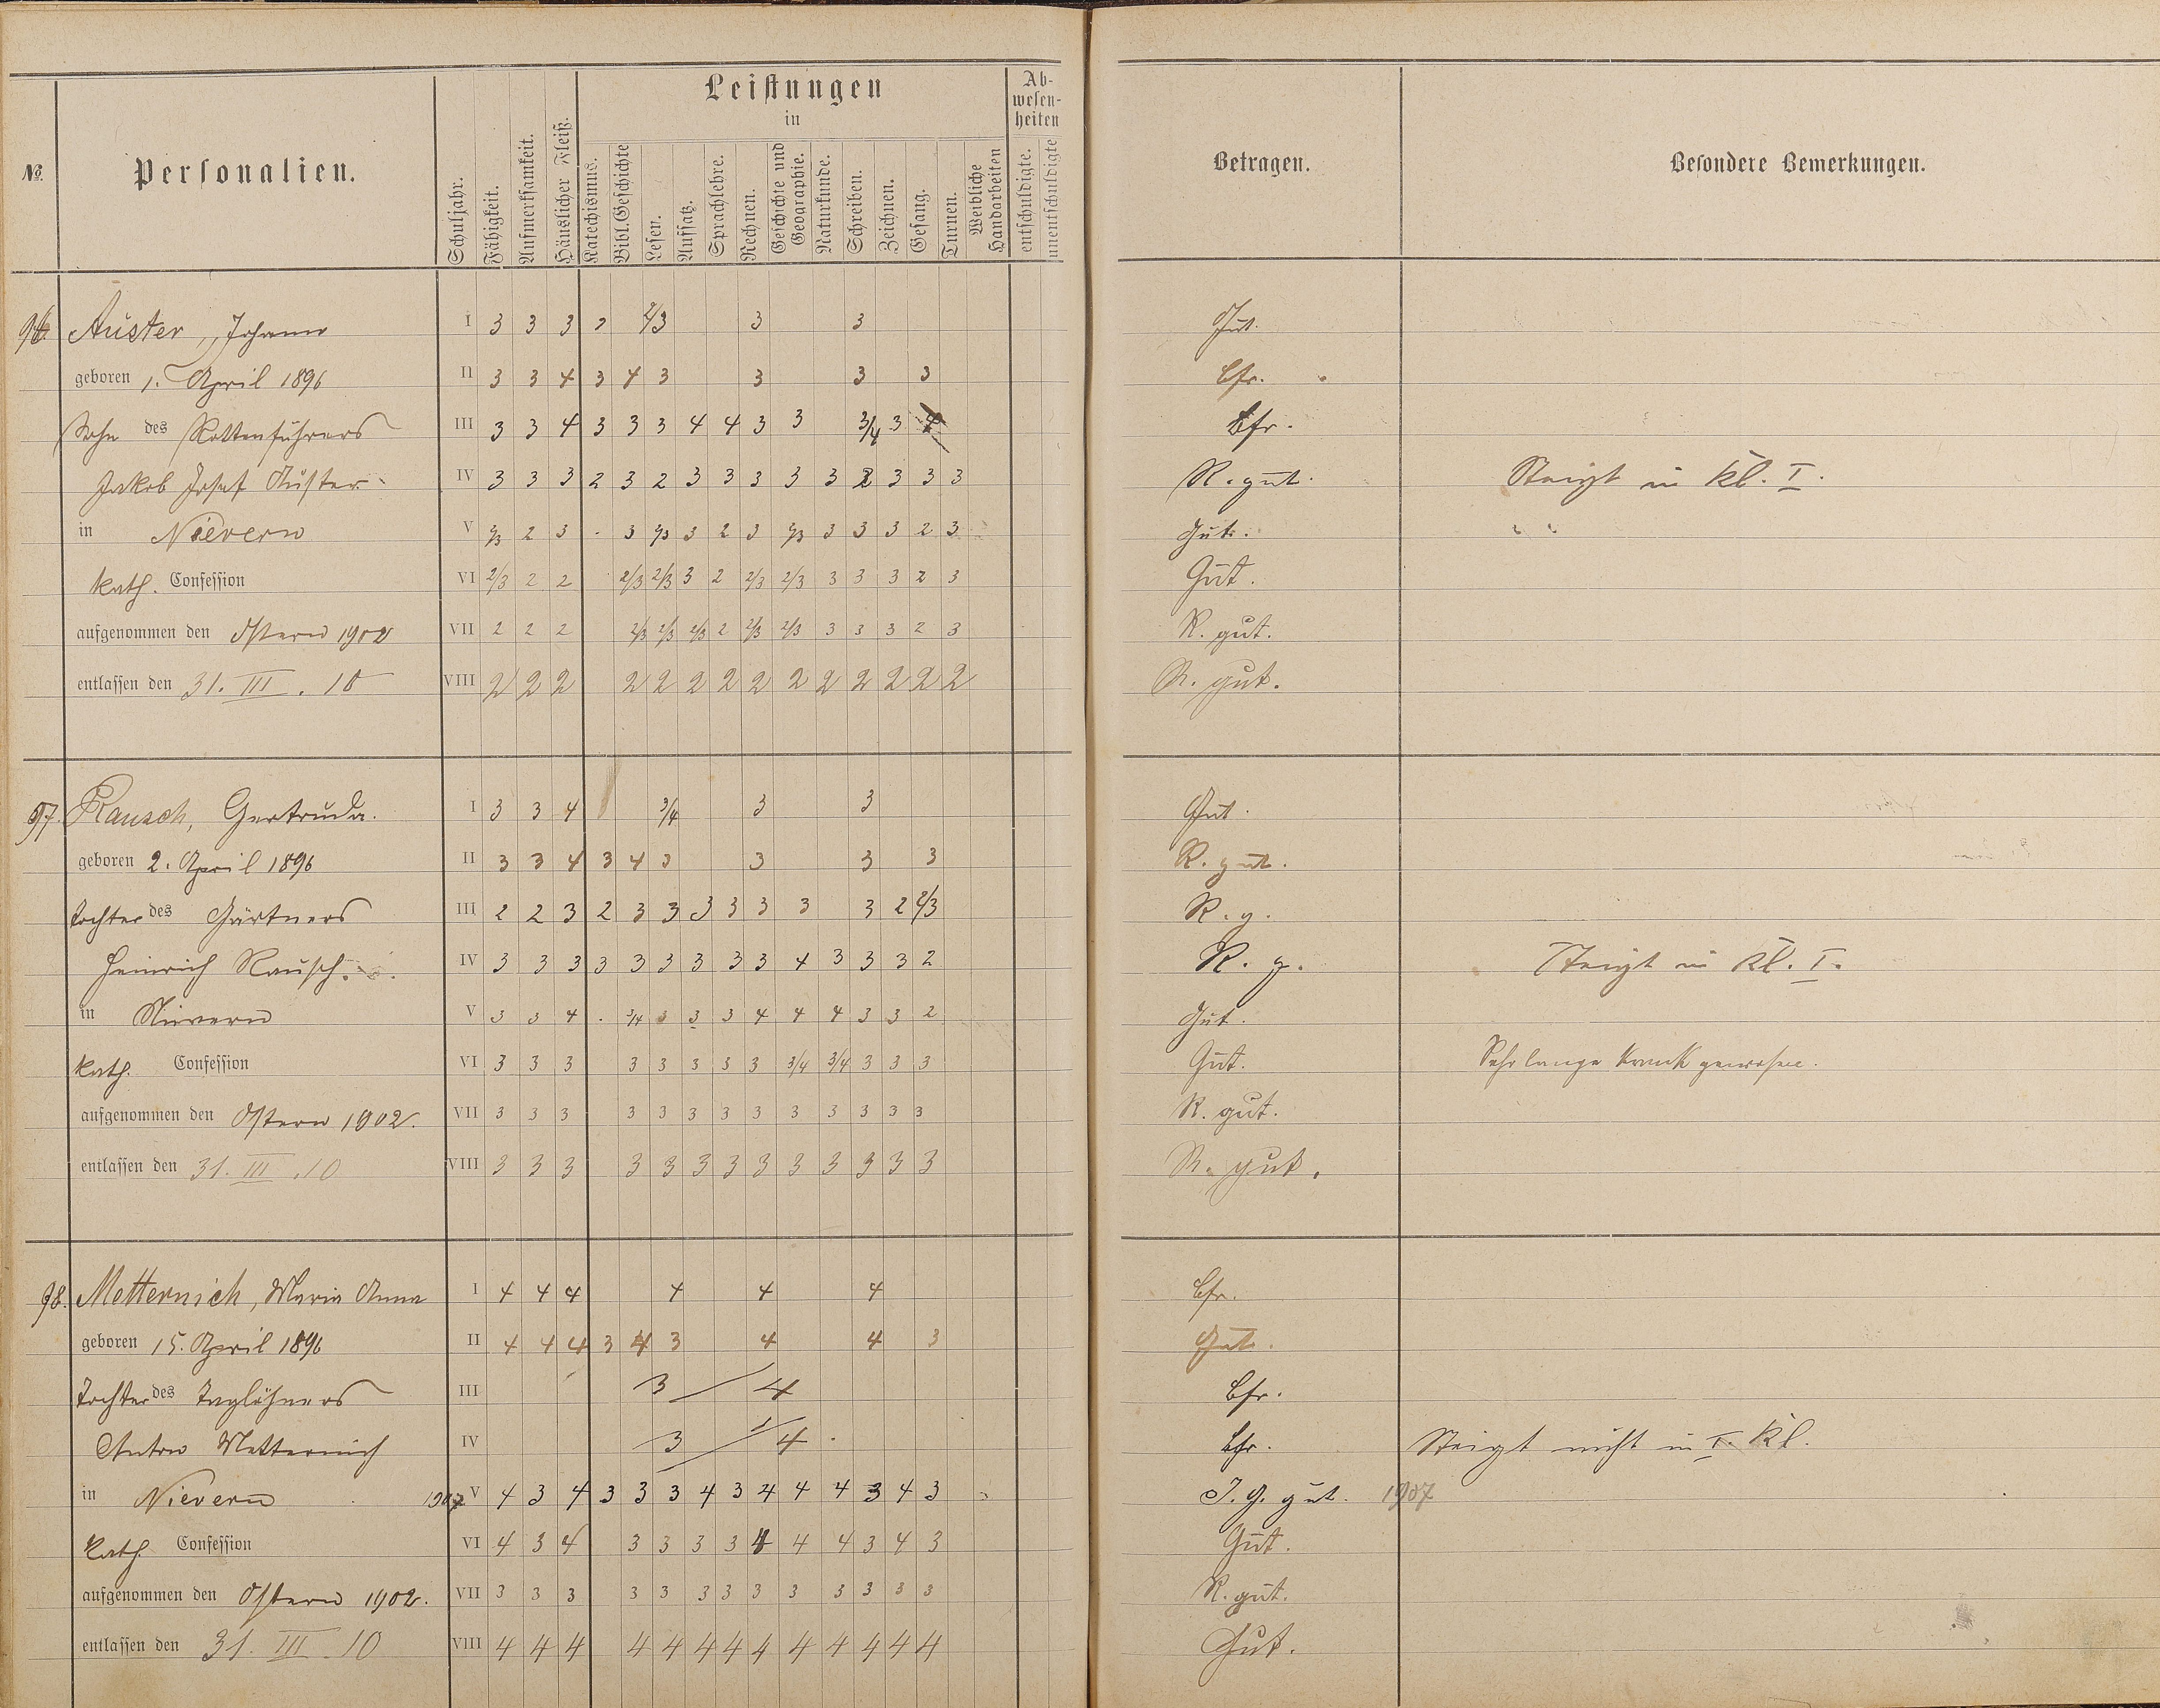 Leistungen
in
Ab-
wesen-
heiten
№
Personalien.
Schuljahr.
Fähigkeit.
Aufmerksamkeit.
Häuslicher Fleiß.
Katechismus.
Bibl. Geschichte
Lesen.
Aufsatz.
Sprachlehre.
Rechnen.
Geschichte und
Geographie.
Naturkunde.
Schreiben.
Zeichnen.
Gesang.
Turnen.
Weibliche
Handarbeiten
entschuldigte.
unentschuldigte
Betragen.
Besondere Bemerkungen.
96. Auster, Johann I 3 3 3 2/3 3 3 Gut.
geboren 1. April 1896 II 3 3 4 3 4 3 3 3 3 bfr.
Sohn des Rottenführers III 3 3 4 3 3 3 4 4 3 3 3/4 3 bfr.
Jakob Josef Auster IV 3 3 3 2 3 2 3 3 3 3 3 2 3 3 3 R. gut. Steigt in Kl. I.
in Nievern V 2/3 2 3 - 3 2/3 3 2 3 2/3 3 3 3 2 3 Gut. " "
kath. Confession VI 2/3 2 2 2/3 2/3 3 2 2/3 2/3 3 3 3 2 3 Gut.
aufgenommen den Ostern 1902 VII 2 2 2 2/3 2/3 2/3 2 2/3 2/3 3 3 3 2 3 R. gut.
entlassen den 31. III. 10 VIII 2 2 2 2 2 2 2 2 2 2 2 2 2 2 R. gut.
97. Rausch, Gertruda. I 3 3 4 3/4 3 3 Gut.
geboren 2. April 1896 II 3 3 4 3 4 3 3 3 3 R. gut.
Tochter des Gärtners III 2 2 3 2 3 3 3 3 3 3 3 2 2/3 R. g.
Heinrich Rausch. IV 3 3 3 3 3 3 3 3 3 4 3 3 3 2 R. g. Steigt in Kl. I.
in Nievern V 3 3 4 . 3/4 3 3 3 4 4 4 3 3 2 Gut.
kath. Confession VI 3 3 3 3 3 3 3 3 3/4 3/4 3 3 3 Gut. Sehr lange krank gewesen.
aufgenommen den Ostern 1902. VII 3 3 3 3 3 3 3 3 3 3 3 3 3 R. gut.
entlassen den 31. III. 10 VIII 3 3 3 3 3 3 3 3 3 3 3 3 3 R. gut.
98. Metternich, Maria Anna I 4 4 4 4 4 4 bfr.
geboren 15. April 1896 II 4 4 4 3 4 3 4 4 3 Gut.
Tochter des Taglöhners III 3 / 4 bfr.
Anton Metternich IV 3 / 4. bfr. Steigt nicht in I. Kl.
in Nievern 1907 V 4 3 4 3 3 3 4 3 4 4 4 3 4 3 I. G. gut. 1907
kath. Confession VI 4 3 4 3 3 3 3 4 4 4 3 4 3 Gut.
aufgenommen den Ostern 1902. VII 3 3 3 3 3 3 3 3 3 3 3 3 3 R. gut.
entlassen den 31. III. 10 VIII 4 4 4 4 4 4 4 4 4 4 4 4 4 Gut.